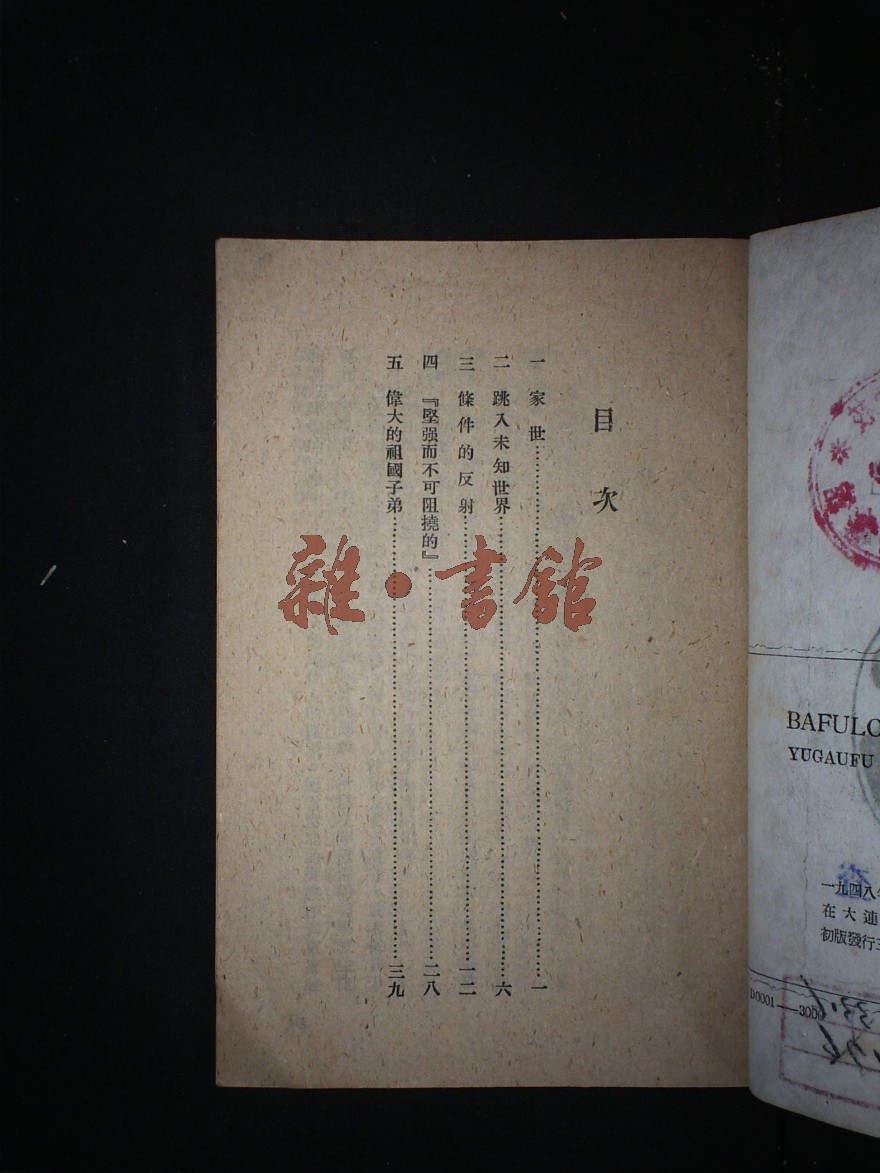 目次
一 家世……一
二 跳入未知世界……六
三 條件的反射……一二
四 『堅强而不可阻撓的』……二八
五 偉大的祖國子弟……三九
雜·書館
BAFULO
YUGAUFU
一九四八
在大連
初版發行
D0001——3000